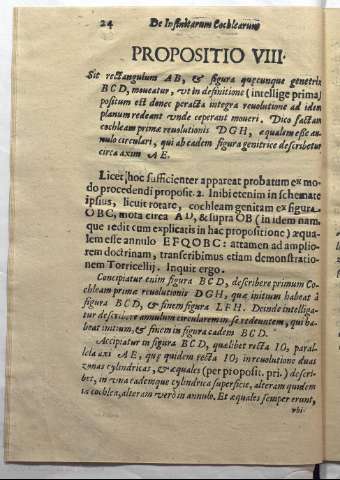 24 De Infinitarum Cochlearum
PROPOSITIO VIII.
Sit rectangulum AB, & figura quæcunque genetrix
BCD, moueatur, vt in definitione (intellige prima)
positum est donec peracta integra reuolutione ad idem
planum redeant vnde ceperant moueri. Dico factam
cochleam primæ reuolutionis DGH, æqualem esse an-
nulo circulari, qui ab eadem figura genitrice describetur
circa axim AE.
Licet hoc sufficienter appareat probatum ex mo-
do procedendi proposit. 2. Inibi etenim in schemate
ipsius, licuit rotare, cochleam genitam ex figura
OBC, mota circa AD, & supra OB (in idem nam-
que redit cum explicatis in hac propositione) æqua-
lem esse annulo EFQOBC: attamen ad amplio-
rem doctrinam, transcribimus etiam demonstratio-
nem Torricellij. Inquit ergo.
Concipiatur enim figura BCD, describere primum Co-
chleam primæ reuolutionis DGH, quæ initium habeat à
figura BCD, & finem figura LFH. Deinde intelliga-
tur describere annulum circularem in se redeuntem, qui ha-
beat initium, & finem in figura eadem BCD.
Accipiatur in figura BCD, quælibet recta IO, paral-
lela axi AE, quæ quidem recta IO, in reuolutione duas
zonas cylindricas, & æquales (per proposit. pri.) descri-
bet, in vna eademque cylindrica superficie, alteram quidem
in cochlea, alteram verò in annulo. Et æquales semper erunt,
vbi-